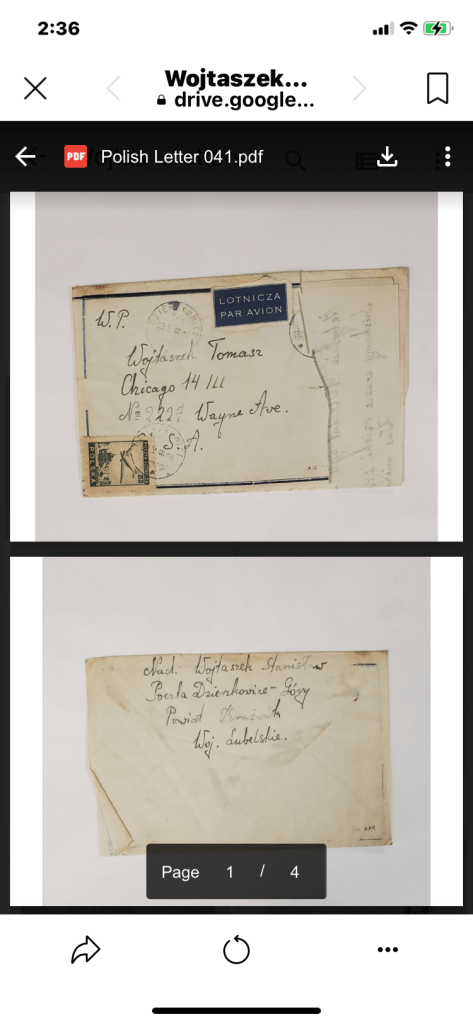 2:36
Wojtaszek...
drive.google...
PDF
Polish Letter 041.pdf
LOTNICZA
PAR AVION
W.P.
Wojtaszek Tomasz
Chicago 14 Ill
No 2227 Wayne Ave.
S. A.
POLSKA
Nad. Wojtaszek Stanisław
Poczta Dzierzkowice-Góry
Powiat
Woj. Lubelskie.
Page 1 / 4